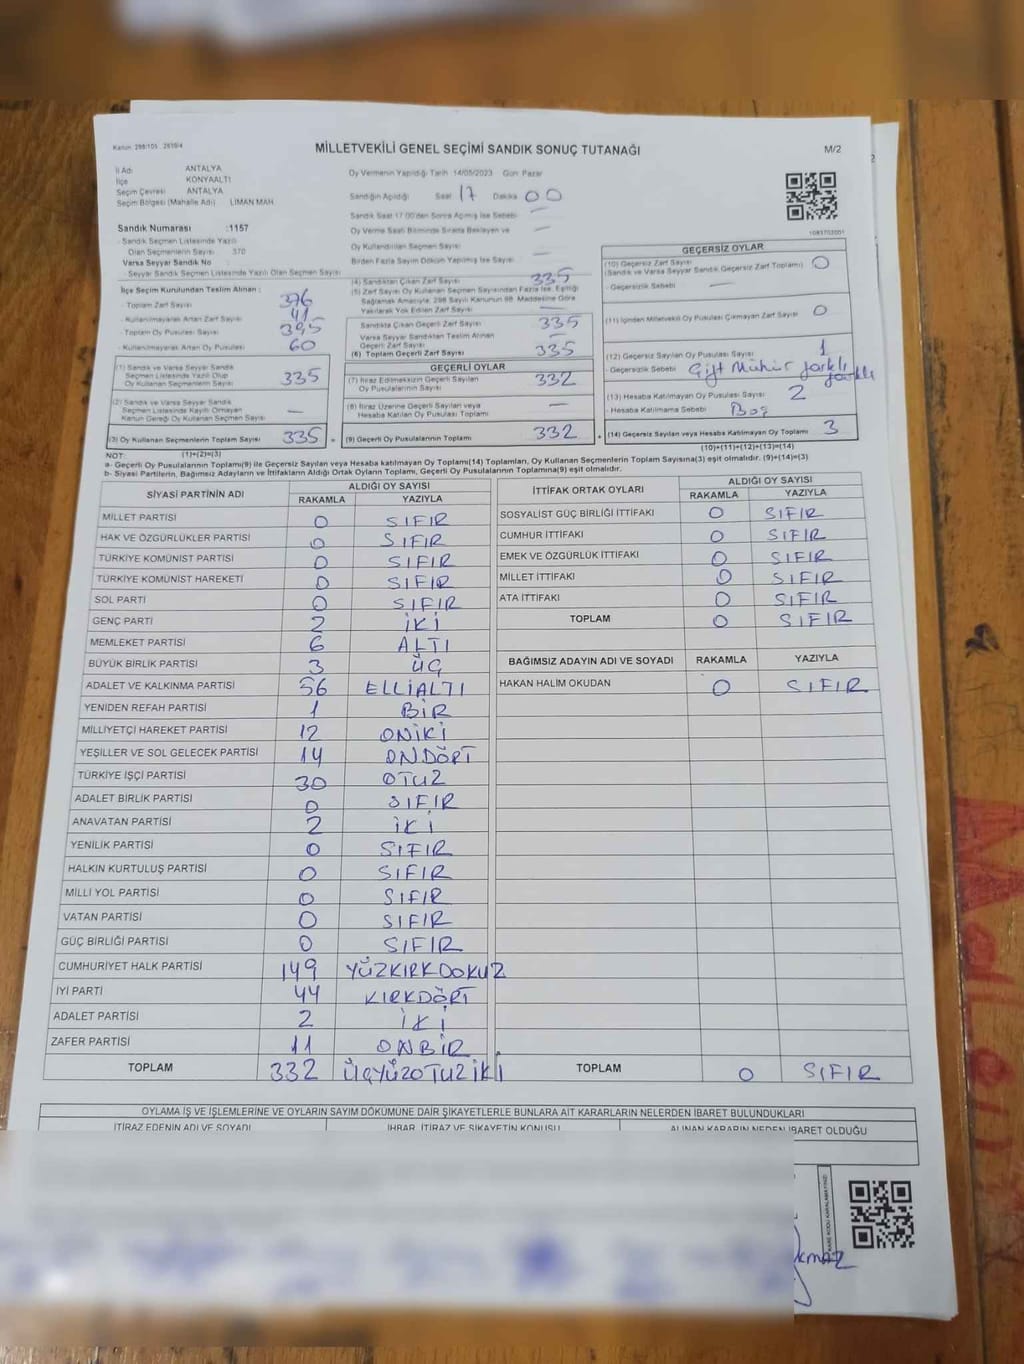 Kanun: 298/105 2839/4
MİLLETVEKİLİ GENEL SEÇİMİ SANDIK SONUÇ TUTANAĞI
M/2
İl Adı ANTALYA
İlçe KONYAALTI
Seçim Çevresi ANTALYA
Seçim Bölgesi (Mahalle Adı) LİMAN MAH.
Sandık Numarası :1157
- Sandık Seçmen Listesinde Yazılı
Olan Seçmenlerin Sayısı 370
Varsa Seyyar Sandık No
- Seyyar Sandık Seçmen Listesinde Yazılı Olan Seçmen Sayısı
İlçe Seçim Kurulundan Teslim Alınan :
- Toplam Zarf Sayısı 376
- Kullanılmayarak Artan Zarf Sayısı 41
- Toplam Oy Pusulası Sayısı 395
- Kullanılmayarak Artan Oy Pusulası 60
(1) Sandık ve Varsa Seyyar Sandık
Seçmen Listesinde Yazılı Olup
Oy Kullanan Seçmenlerin Sayısı 335
(2) Sandık ve Varsa Seyyar Sandık
Seçmen Listesinde Kayıtlı Olmayan
Kanun Gereği Oy Kullanan Seçmen Sayısı —
(3) Oy Kullanan Seçmenlerin Toplam Sayısı 335
Oy Vermenin Yapıldığı Tarih 14/05/2023 Gün Pazar
Sandığın Açıldığı Saat 17 Dakika 00
Sandık Saat 17.00'den Sonra Açılmış İse Sebebi —
Oy Verme Saati Bitiminde Sırada Bekleyen ve —
Oy Kullandırılan Seçmen Sayısı —
Birden Fazla Sayım Döküm Yapılmış İse Sayısı —
(4) Sandıktan Çıkan Zarf Sayısı 335
(5) Zarf Sayısı Oy Kullanan Seçmen Sayısından Fazla İse, Eşitliği
Sağlamak Amacıyla, 298 Sayılı Kanunun 98. Maddesine Göre
Yakılarak Yok Edilen Zarf Sayısı —
Sandıkta Çıkan Geçerli Zarf Sayısı 335
Varsa Seyyar Sandıktan Teslim Alınan
Geçerli Zarf Sayısı —
(6) Toplam Geçerli Zarf Sayısı 335
GEÇERLİ OYLAR
(7) İtiraz Edilmeksizin Geçerli Sayılan
Oy Pusulalarının Sayısı 332
(8) İtiraz Üzerine Geçerli Sayılan veya
Hesaba Katılan Oy Pusulası Toplamı —
= (9) Geçerli Oy Pusulalarının Toplamı 332
1083702001
GEÇERSİZ OYLAR
(10) Geçersiz Zarf Sayısı
(Sandık ve Varsa Seyyar Sandık Geçersiz Zarf Toplamı) 0
- Geçersizlik Sebebi —
(11) İçinden Milletvekili Oy Pusulası Çıkmayan Zarf Sayısı 0
(12) Geçersiz Sayılan Oy Pusulası Sayısı 1
- Geçersizlik Sebebi Çift Mühür farklı
farklı
(13) Hesaba Katılmayan Oy Pusulası Sayısı 2
- Hesaba Katılmama Sebebi Boş
+ (14) Geçersiz Sayılan veya Hesaba Katılmayan Oy Toplamı 3
NOT: (1)+(2)=(3) (10)+(11)+(12)+(13)=(14)
a- Geçerli Oy Pusulalarının Toplamı(9) ile Geçersiz Sayılan veya Hesaba katılmayan Oy Toplamı(14) Toplamları, Oy Kullanan Seçmenlerin Toplam Sayısına(3) eşit olmalıdır. (9)+(14)=(3)
b- Siyasi Partilerin, Bağımsız Adayların ve İttifakların Aldığı Ortak Oyların Toplamı, Geçerli Oy Pusulalarının Toplamına(9) eşit olmalıdır.
SİYASİ PARTİNİN ADI ALDIĞI OY SAYISI
RAKAMLA YAZIYLA
MİLLET PARTİSİ 0 SIFIR
HAK VE ÖZGÜRLÜKLER PARTİSİ 0 SIFIR
TÜRKİYE KOMÜNİST PARTİSİ 0 SIFIR
TÜRKİYE KOMÜNİST HAREKETİ 0 SIFIR
SOL PARTİ 0 SIFIR
GENÇ PARTİ 2 İKİ
MEMLEKET PARTİSİ 6 ALTI
BÜYÜK BİRLİK PARTİSİ 3 ÜÇ
ADALET VE KALKINMA PARTİSİ 56 ELLİALTI
YENİDEN REFAH PARTİSİ 1 BİR
MİLLİYETÇİ HAREKET PARTİSİ 12 ONİKİ
YEŞİLLER VE SOL GELECEK PARTİSİ 14 ONDÖRT
TÜRKİYE İŞÇİ PARTİSİ 30 OTUZ
ADALET BİRLİK PARTİSİ 0 SIFIR
ANAVATAN PARTİSİ 2 İKİ
YENİLİK PARTİSİ 0 SIFIR
HALKIN KURTULUŞ PARTİSİ 0 SIFIR
MİLLİ YOL PARTİSİ 0 SIFIR
VATAN PARTİSİ 0 SIFIR
GÜÇ BİRLİĞİ PARTİSİ 0 SIFIR
CUMHURİYET HALK PARTİSİ 149 YÜZKIRKDOKUZ
İYİ PARTİ 44 KIRKDÖRT
ADALET PARTİSİ 2 İKİ
ZAFER PARTİSİ 11 ONBİR
TOPLAM 332 ÜÇYÜZOTUZİKİ
İTTİFAK ORTAK OYLARI ALDIĞI OY SAYISI
RAKAMLA YAZIYLA
SOSYALİST GÜÇ BİRLİĞİ İTTİFAKI 0 SIFIR
CUMHUR İTTİFAKI 0 SIFIR
EMEK VE ÖZGÜRLÜK İTTİFAKI 0 SIFIR
MİLLET İTTİFAKI 0 SIFIR
ATA İTTİFAKI 0 SIFIR
TOPLAM 0 SIFIR
BAĞIMSIZ ADAYIN ADI VE SOYADI RAKAMLA YAZIYLA
HAKAN HALİM OKUDAN 0 SIFIR
TOPLAM 0 SIFIR
OYLAMA İŞ VE İŞLEMLERİNE VE OYLARIN SAYIM DÖKÜMÜNE DAİR ŞİKAYETLERLE BUNLARA AİT KARARLARIN NELERDEN İBARET BULUNDUKLARI
İTİRAZ EDENİN ADI VE SOYADI İHBAR, İTİRAZ VE ŞİKAYETİN KONUSU ALINAN KARARIN NEDEN İBARET OLDUĞU
KARE KODU KARALAMAYINIZ!